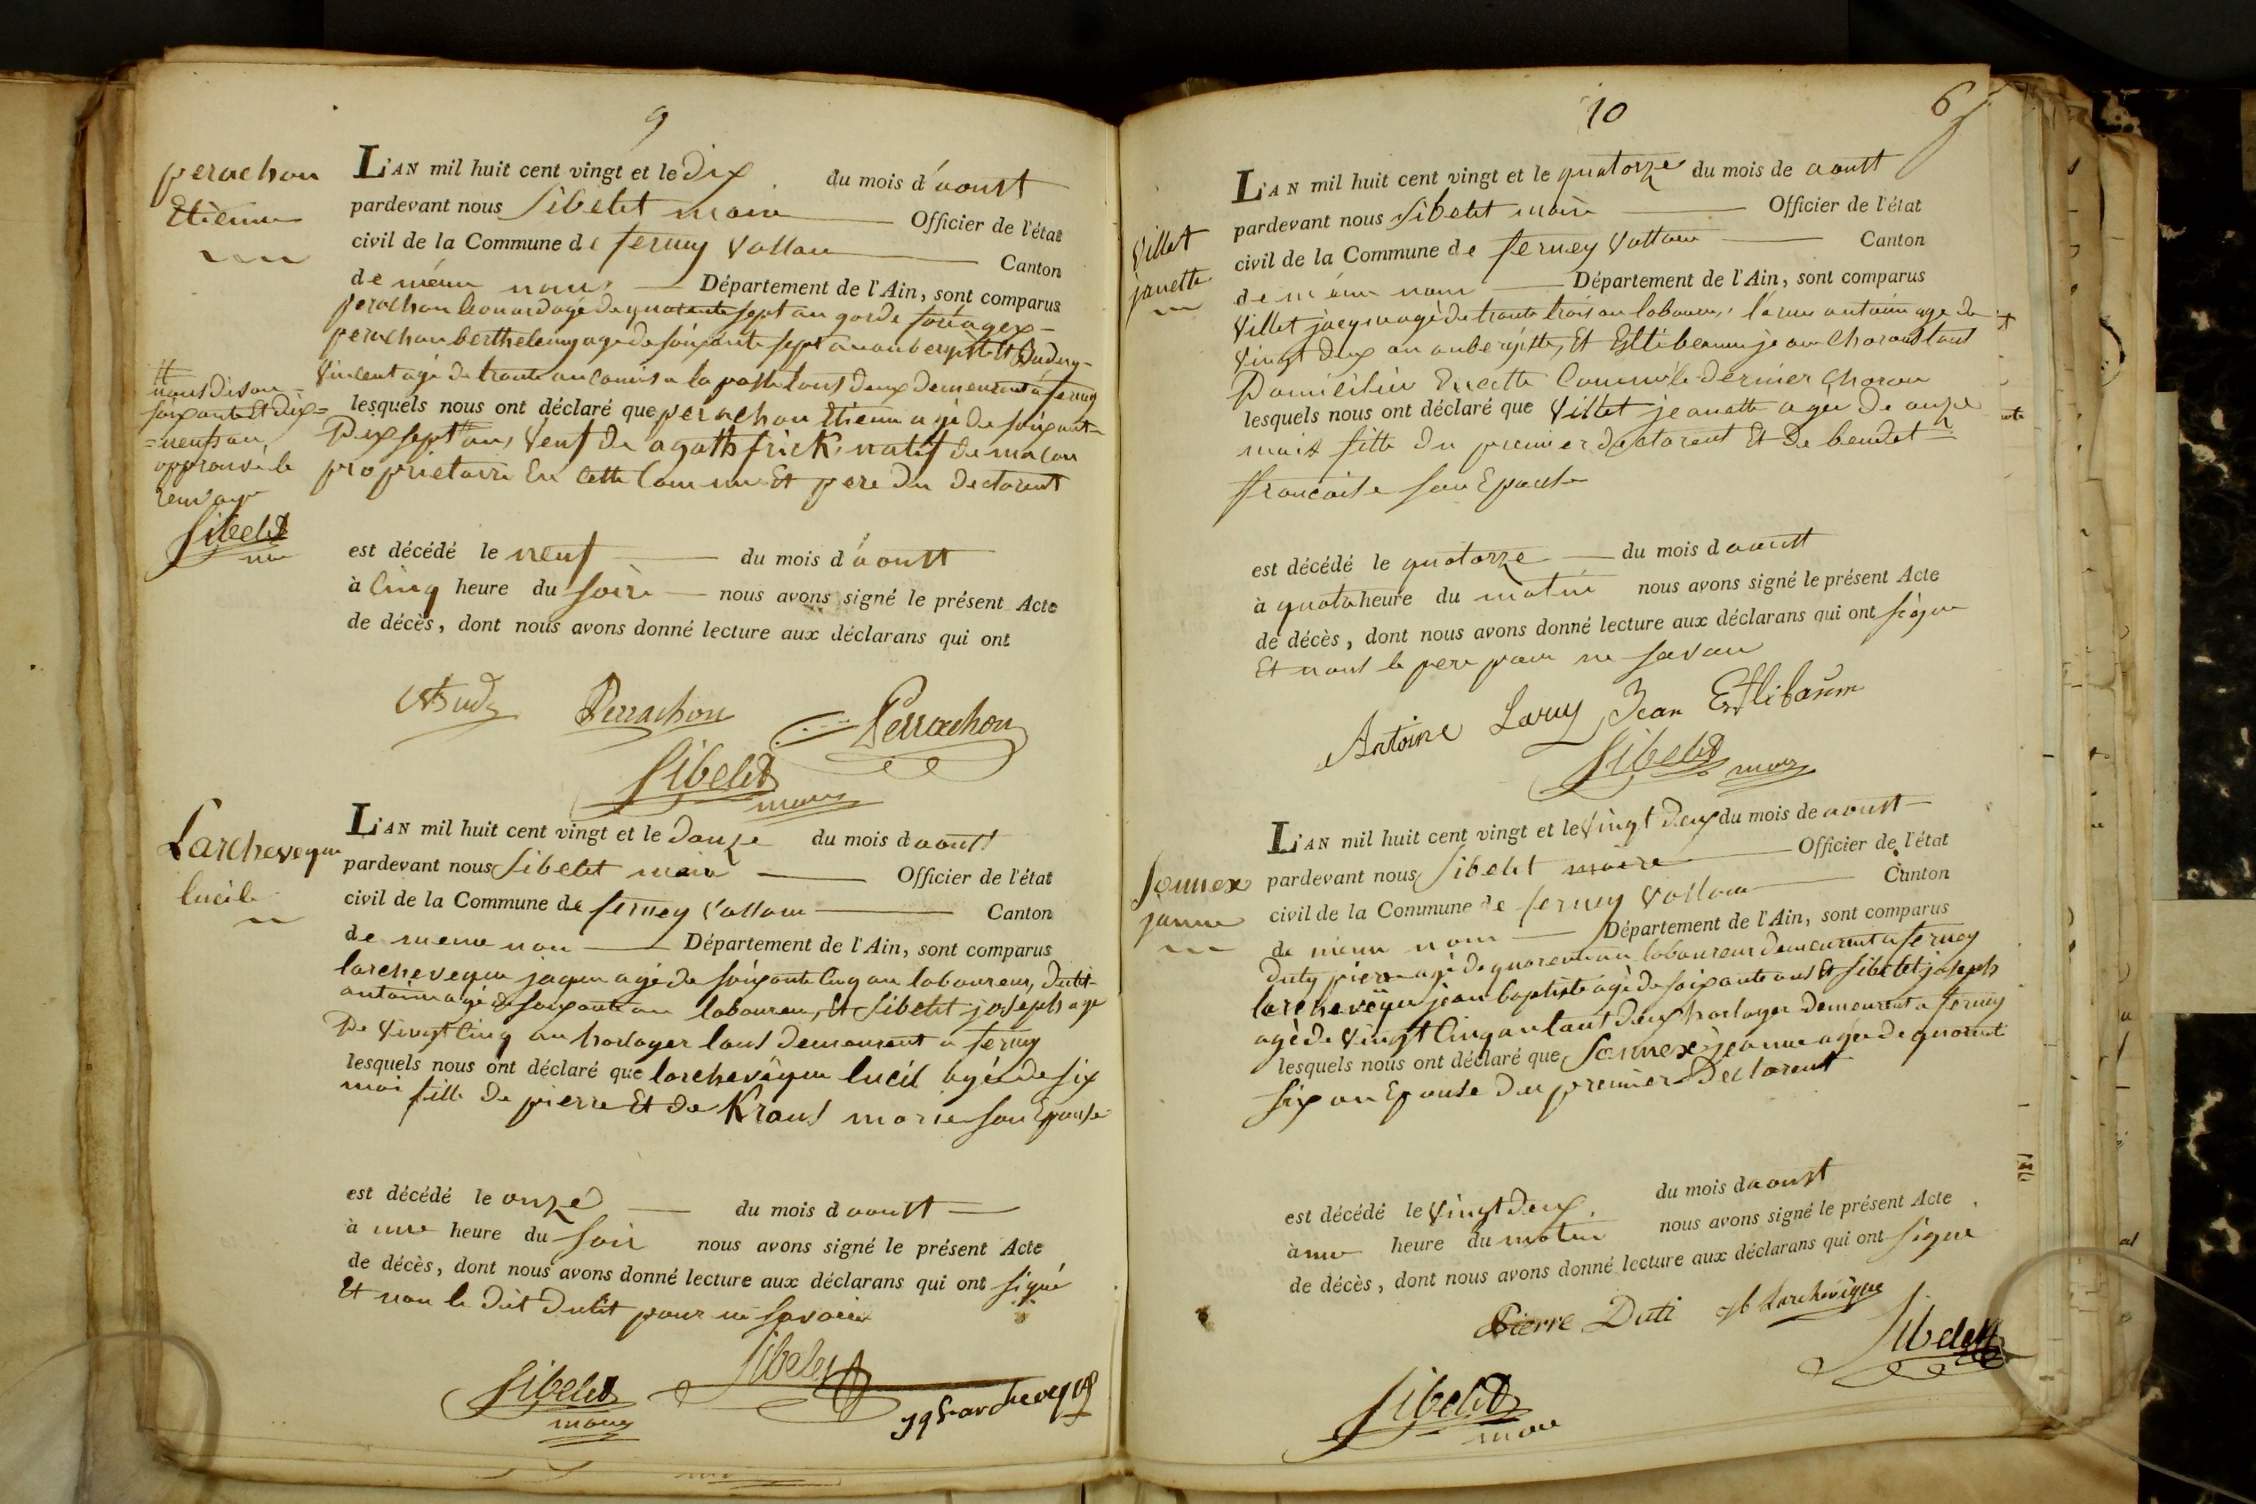 9
perachon
Etienne
L'AN mil huit cent vingt et le dix du mois d'aoust
pardevant nous Sibelet maire Officier de l'état
civil de la Commune de ferney Voltaire Canton
de même nom, Département de l'Ain, sont comparus
perachon leonard agé de quarante sept an garde
perachon berthelemy agé de soixante sept an aubergiste Et
Vincent agé de trante an comis a la poste tous deux demeurent a ferney
lesquels nous ont déclaré que perachon Etienne agé de soixante
Dix sept an, Veuf de agath frick, natif de macon
propriétaire En cette Commune Et pere du declarent
#
nous disons
soixante Et dix=
=neuf an
approuvé le
renvoye
Sibelet
est décédé le neuf du mois d'aoust
à Cinq heure du soire nous avons signé le présent Acte
de décès, dont nous avons donné lecture aux déclarans qui ont
Perrachon Perrachon
Sibelet
maire
Larcheveque
lucile
L'AN mil huit cent vingt et le douze du mois d aoust
pardevant nous Sibelet maire Officier de l'état
civil de la Commune de ferney Voltaire Canton
de meme nom Département de l'Ain, sont comparus
larcheveque jaque agé de soixante Cinq an laboureur, Dutit
antoine agé de soixante an laboureur, Et Sibelet joseph age
De Vingt Cinq an horloger tous demeurent a ferney
lesquels nous ont déclaré que larchevêque lucil agée de six
moi fille de pierre Et de Kraus marie son Epouse
est décédé le onze du mois d aoust
à une heure du soir nous avons signé le présent Acte
de décès, dont nous avons donné lecture aux déclarans qui ont signé
Et non le dit Dutit pour ne savoir
Sibelet
Sibelet
maire
Jq Larcheveque
10 6
Villet
janette
L'AN mil huit cent vingt et le quatorze du mois de aoust
pardevant nous Sibelet maire Officier de l'état
civil de la Commune de ferney Voltaire Canton
de même nom Département de l'Ain, sont comparus
Villet jacque agé de trante trois an laboureur, larue antoine age de
Vingt deux an aubergiste, Et Estlibaume jean Charon tous
Domiciliés En cette Commune le dernier Charon
lesquels nous ont déclaré que Villet jeanette agée de onze
mois fille du premier declarent Et De bendet
francoise son Epouse
est décédé le quatorze du mois d aoust
à quatre heure du matin nous avons signé le présent Acte
de décès, dont nous avons donné lecture aux déclarans qui ont signé
Et nous le pere pour ne savoir
Antoine Laruy Jean Estlibaum
Sibelet
maire
Sonnex
janne
L'AN mil huit cent vingt et le Vingt deux du mois de aoust
pardevant nous Sibelet maire Officier de l'état
civil de la Commune de ferney Voltaire Canton
de meme nom Département de l'Ain, sont comparus
Duty pierre agé de quarente an laboureur demeurent a ferney
larchevêque jean baptiste agé de soixante ans Et Sibelet joseph
agé de Vingt Cinq an tous deux horloger demeurent a ferney
lesquels nous ont déclaré que Sonnex jeanne agée de quarente
six an Epouse du premier Declarent
est décédé le Vingt deux, du mois d aoust
à une heure du matin nous avons signé le présent Acte
de décès, dont nous avons donné lecture aux déclarans qui ont signé
Pierre Duti Jb Larchevêque
Sibelet
Sibelet
maire